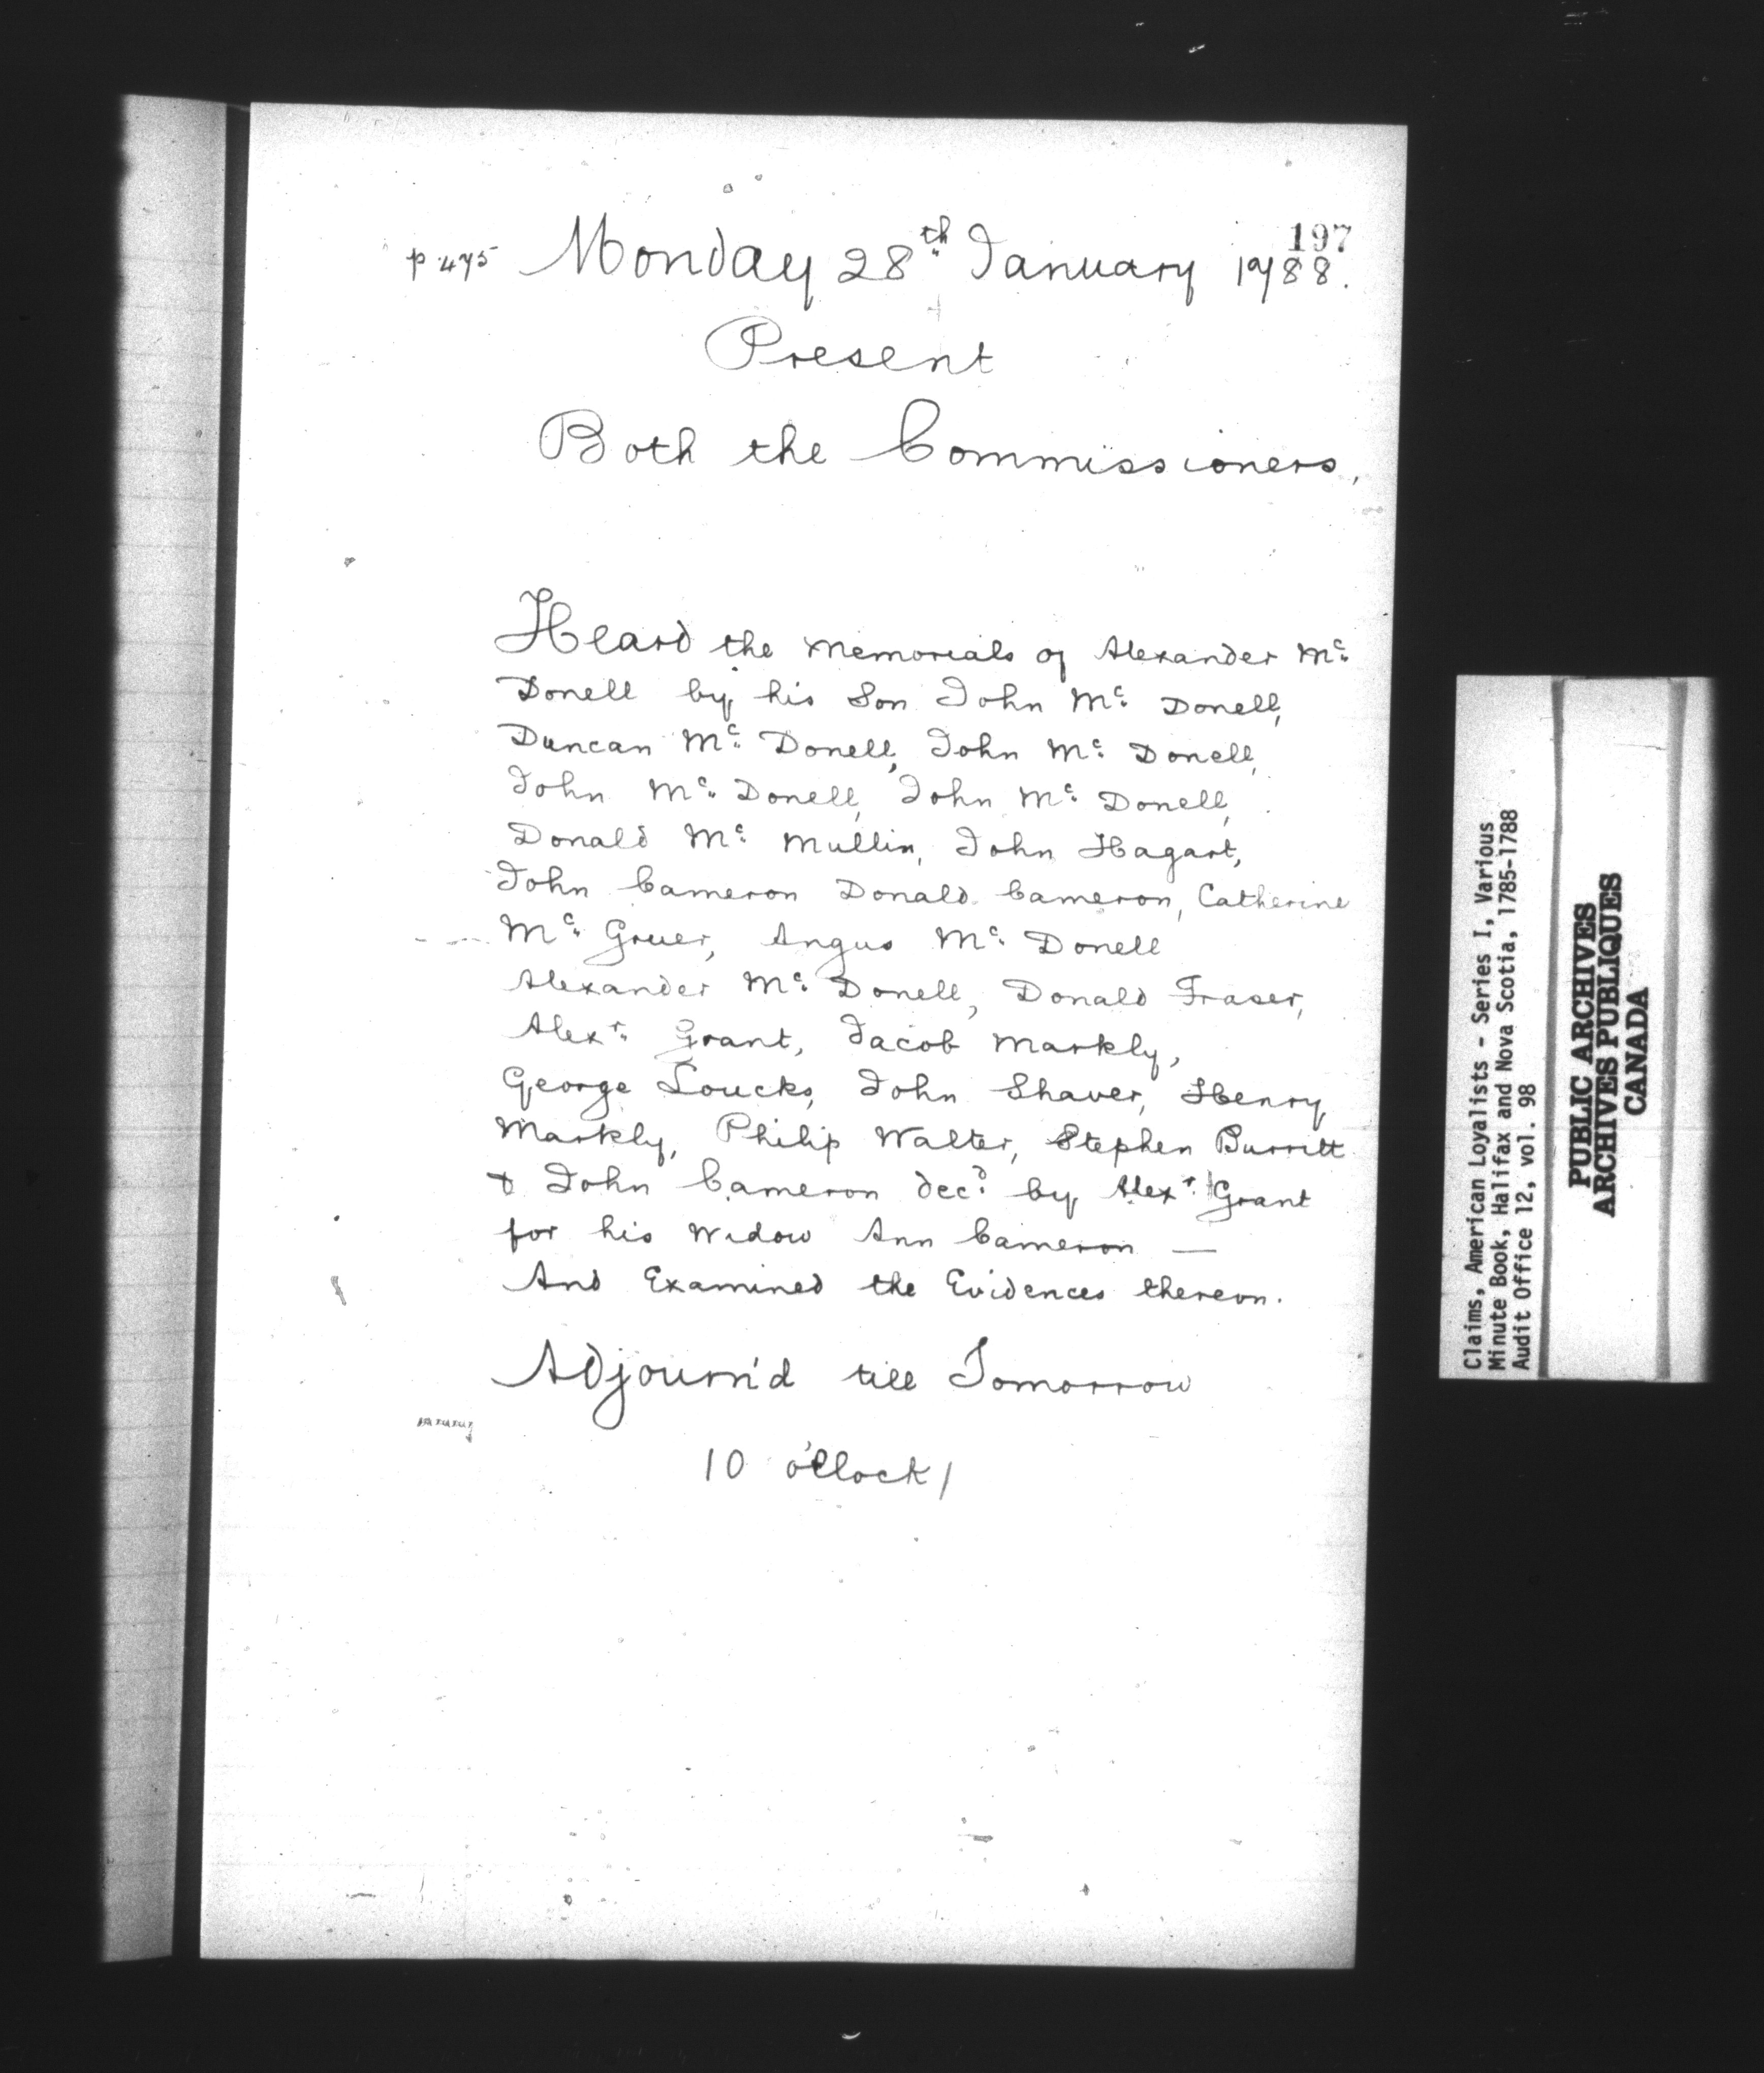 197
p. 475 Monday 28th January 1788.
Present
Both the Commissioners,
Heard the Memorials of Alexander Mc.
Donell by his Son John Mc. Donell,
Duncan Mc. Donell, John Mc. Donell,
John Mc. Donell, John Mc. Donell,
Donald Mc. Mullin, John Hagart,
John Cameron Donald Cameron, Catherine
Mc. Gruer, Angus Mc. Donell
Alexander Mc. Donell, Donald Fraser,
Alexr. Grant, Jacob Markly,
George Loucks, John Shaver, Henry
Markly, Philip Walter, Stephen Burritt
& John Cameron decd. by Alexr. Grant
for his Widow Ann Cameron —
And Examined the Evidences thereon.
Adjourn'd till Tomorrow
10 o'Clock/
Claims, American Loyalists - Series I, Various
Minute Book, Halifax and Nova Scotia, 1785-1788
Audit Office 12, vol. 98
PUBLIC ARCHIVES
ARCHIVES PUBLIQUES
CANADA